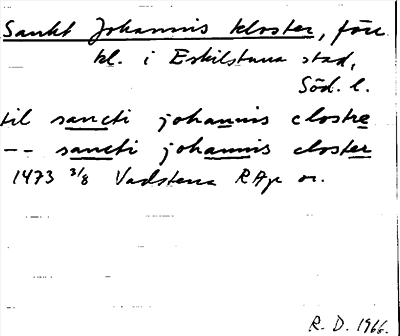 Sankt Johannis kloster, före
kl. i Eskilstuna stad,
Söd. l.
til sancti johannis clostre
-- sancti johannis closter
1473 3/8 Vadstena RAp or.
R. D. 1966.